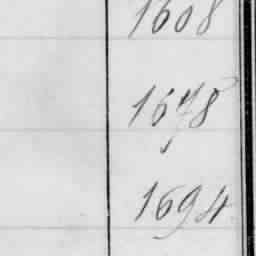 1608
1678
1694